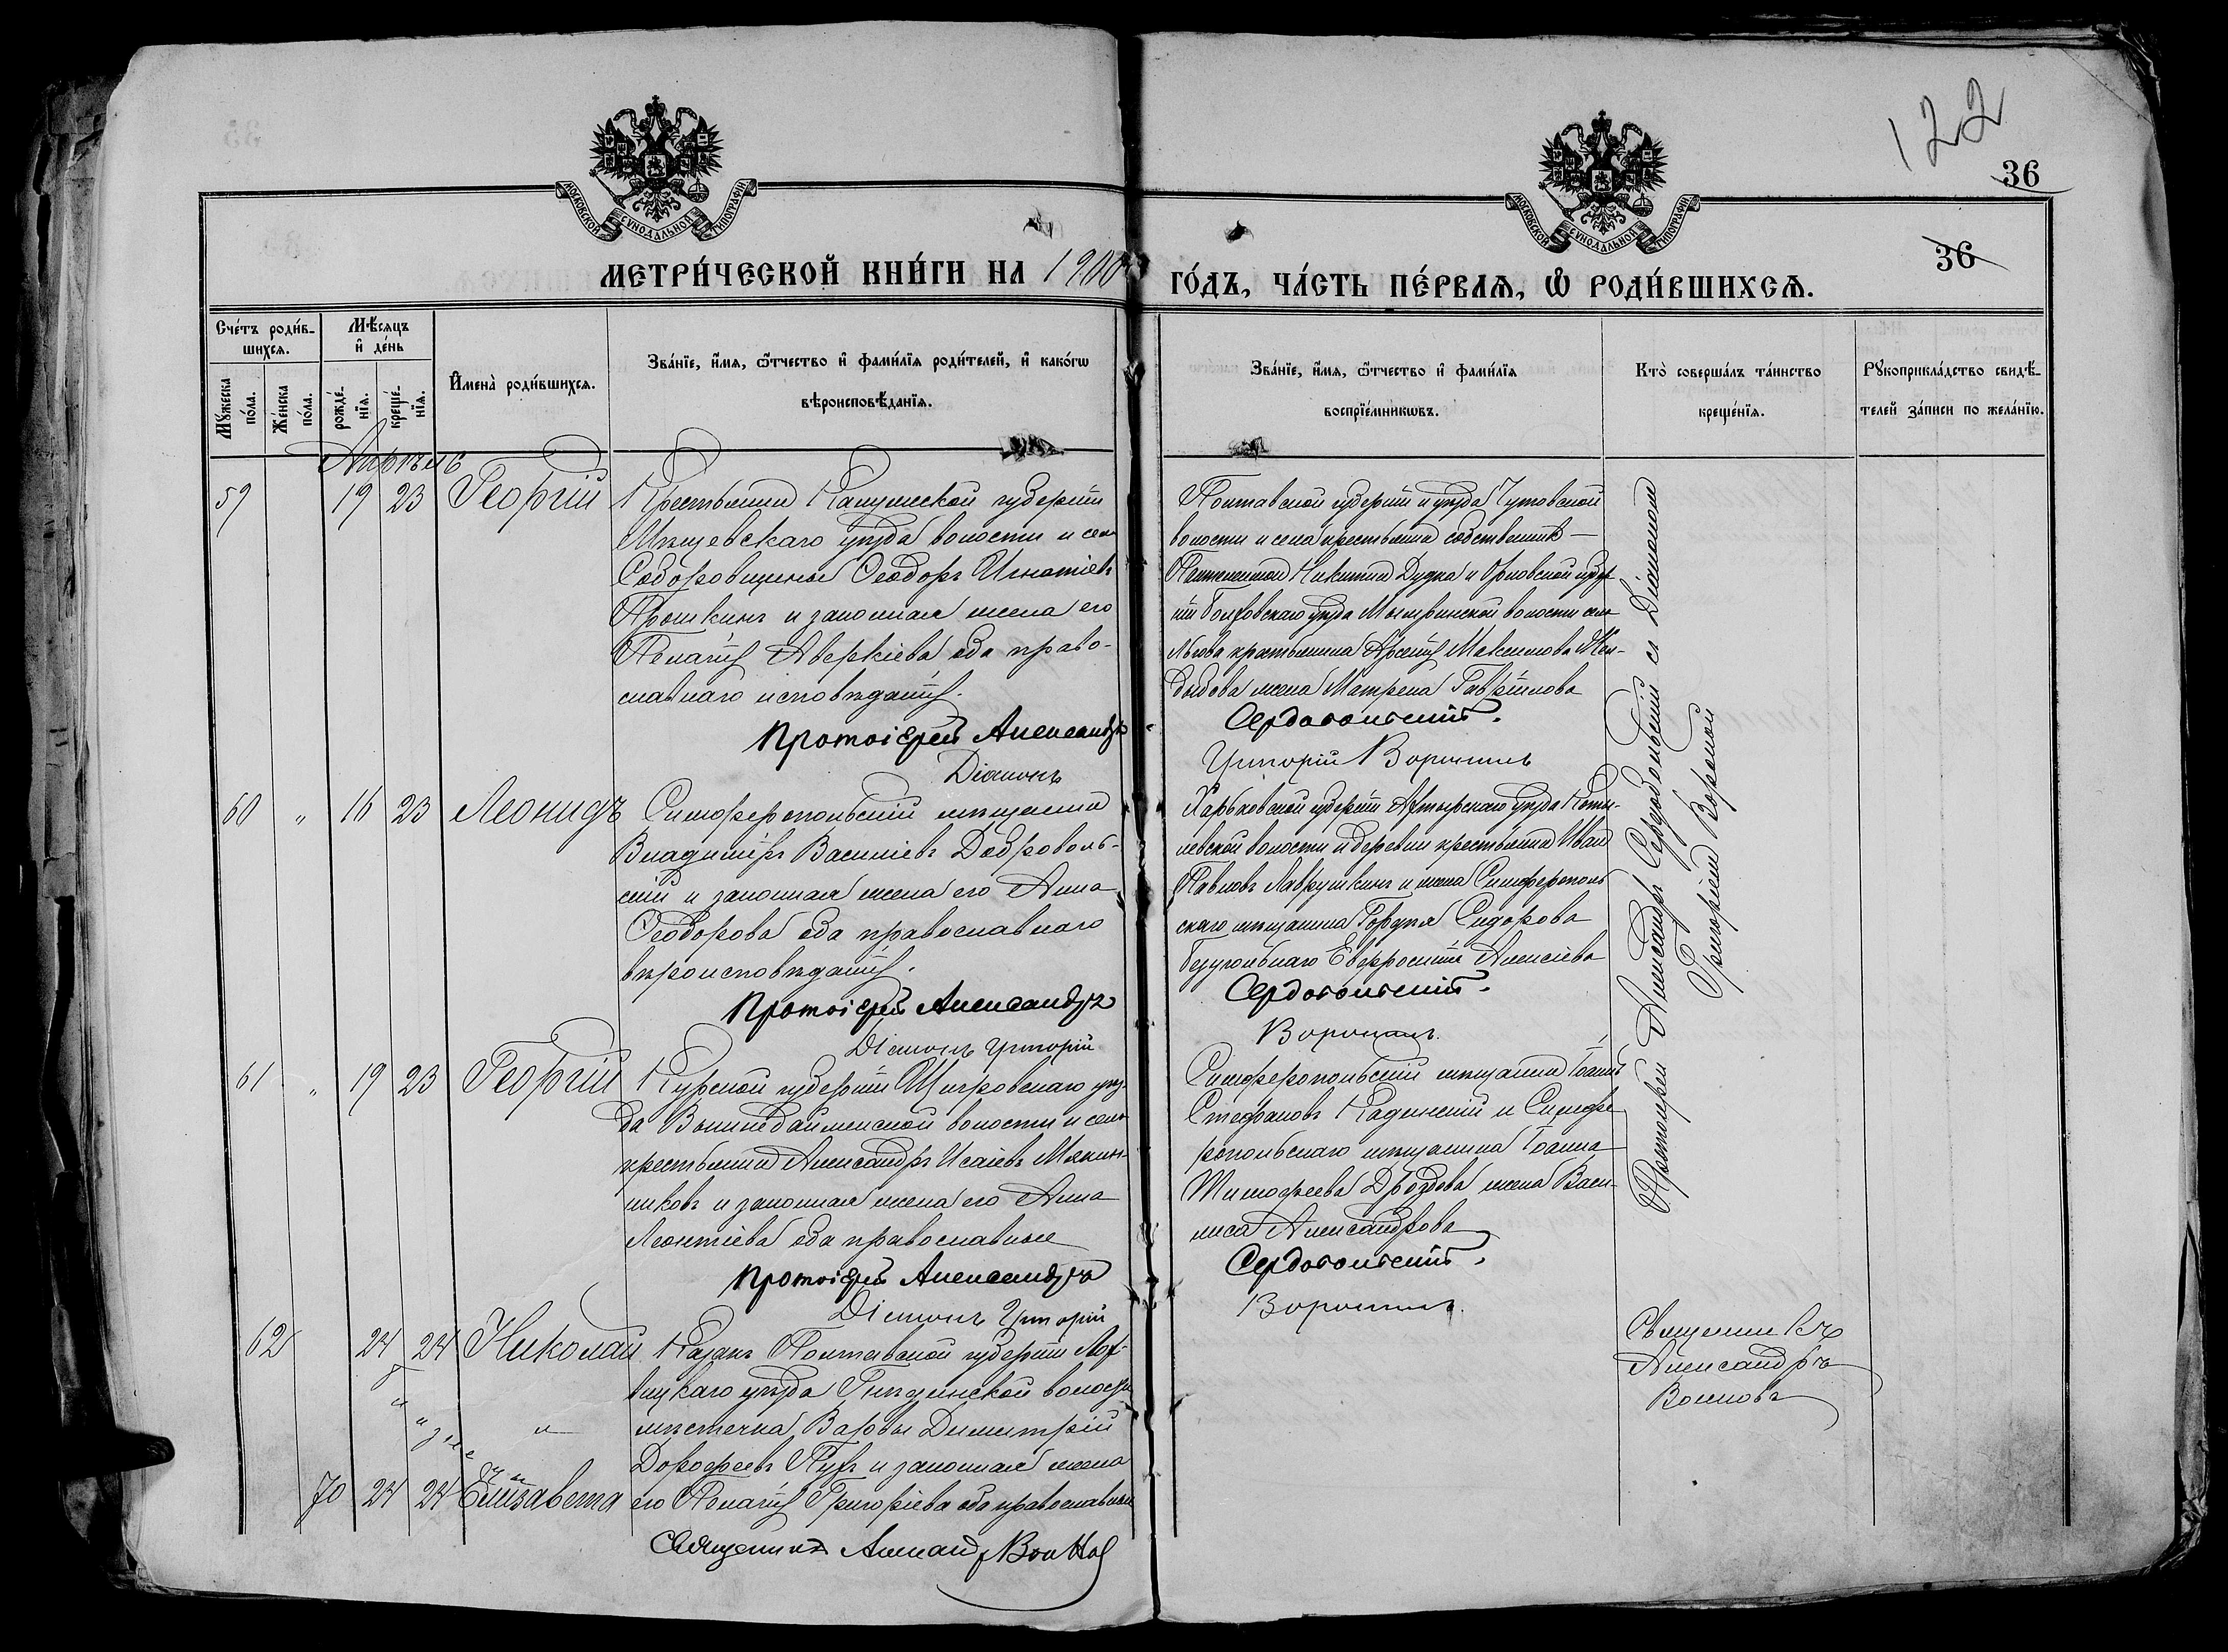 122
36
36
МОСКОВСКОЙ СѴНОДАЛЬНОЙ ТИПОГРАФІИ
МОСКОВСКОЙ СѴНОДАЛЬНОЙ ТИПОГРАФІИ
МЕТРИ́ЧЕСКОЙ КНИ́ГИ НА 1900 ГО́ДЪ, ЧА́СТЬ ПЕ́РВАѦ, Ѽ РОДИ́ВШИХСѦ.
Сче́тъ роди́в-
шихсѧ.
Мꙋ́жеска по́ла.
Же́нска по́ла.
Мѣ́сѧцъ
и҆ де́нь
рожде́-
нїѧ.
креще́-
нїѧ.
И҆мена̀ роди́вшихсѧ.
Зва́нїе, и҆́мѧ, ѻ҆́тчество и҆ фами́лїѧ роди́телей, и҆ како́гѡ
вѣроисповѣ́данїѧ.
Зва́нїе, и҆́мѧ, ѻ҆́тчество и҆ фами́лїѧ
воспрїе́мникѡвъ.
Кто̀ соверша́лъ та́инство
креще́нїѧ.
Рꙋкоприкла́дство свидѣ́-
телей за́писи по жела́нїю.
Апрѣль
59 19 23 Георгій
Крестьянинъ Калужской губерніи
Мещевскаго уѣзда волости и села
Ѳеодоръ Игнатіевъ
Прошкинъ и законная жена его
Пелагія Аверкіева оба право-
славнаго исповѣданія.
Протоіерей Александръ
Діаконъ
Полтавской губерніи и уѣзда Чутовской
волости и села крестьянинъ собственникъ
Никитинъ Дудка и Орловской губер-
ніи Болховскаго уѣзда волости села
Льгова крестьянина Арсенія Максимова
жена Матрена Гавріилова
Сердобольскій.
Григорій Воронинъ
60 „ 16 23 Леонидъ
Симферопольскій мѣщанинъ
Владиміръ Василіевъ Доброволь-
скій и законная жена его Анна
Ѳеодорова оба православнаго
вѣроисповѣданія.
Протоіерей Александръ
Діаконъ Григорій
Харьковской губерніи Ахтырскаго уѣзда Коте-
левской волости и деревни крестьянинъ Иванъ
Павловъ Лаврушкинъ и жена Симферополь
скаго мѣщанина Сидорова
Евфросинія Алексіева
Сердобольскій.
Воронинъ.
61 „ 19 23 Георгій
Курской губерніи Щигровскаго уѣз-
да волости и села
крестьянинъ Александръ Исаіевъ Мякин-
никовъ и законная жена его Анна
Леонтіева оба православные
Протоіерей Александръ
Діаконъ Григорій
Симферопольскій мѣщанинъ Іоаннъ
Стефановъ Кадинскій и Симфе
ропольскаго мѣщанина Іоанна
Тимофеева Дроздова жена Васи-
лиса Александрова
Сердобольскій.
Воронинъ.
Протоіерей Александръ Сердобольскій съ Діакономъ
Григоріемъ
62 24 24 Николай
Казакъ Полтавской губерніи Лох-
вицкаго уѣзда волости
мѣстечка Варвы Димитрій
Дорофеевъ и законная жена
70 24 24 Елизавета
его Пелагія Григоріева оба православные
Священникъ
Священникъ
Александръ
Воиновъ